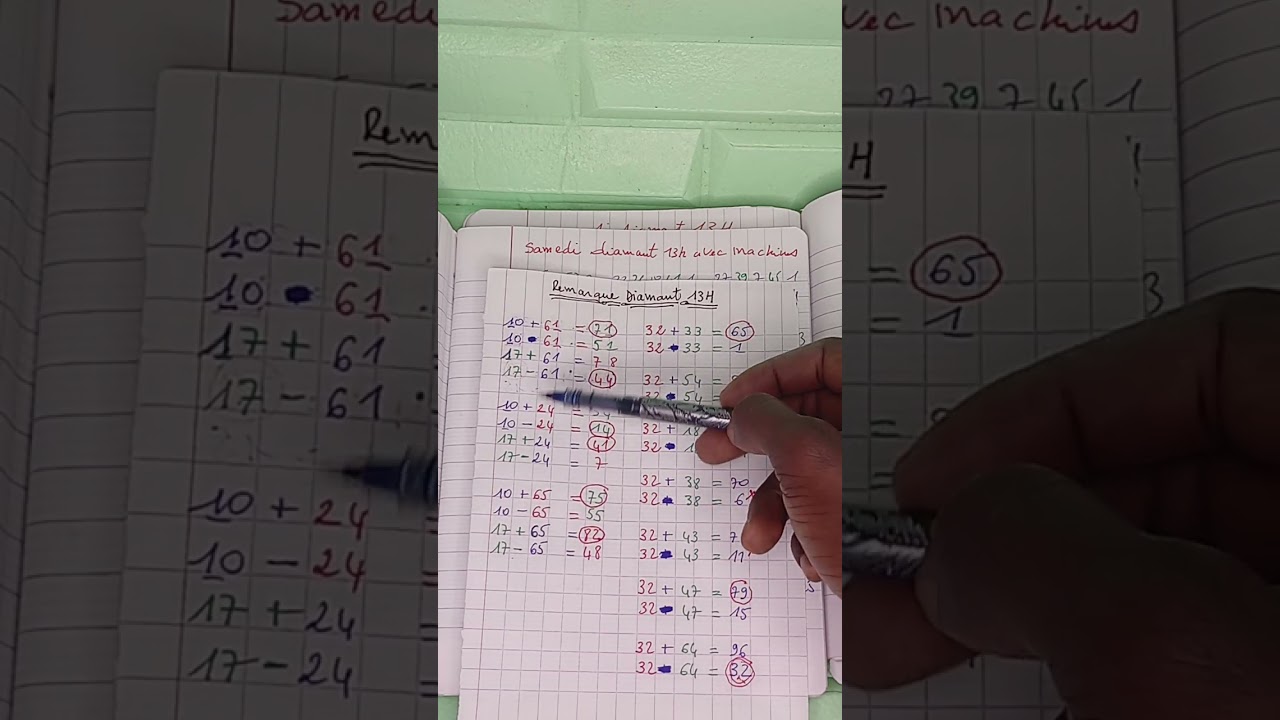 Samedi diamant 13h avec machins
27 39 7 45 1
Remarque Diamant 13H
10 + 61 = 71
10 - 61 = 51
17 + 61 = 78
17 - 61 = 44
10 + 24 =
10 - 24 = 14
17 + 24 = 41
17 - 24 = 7
10 + 65 = 75
10 - 65 = 55
17 + 65 = 82
17 - 65 = 48
32 + 33 = 65
32 - 33 = 1
32 + 54 =
32 - 54 =
32 + 18
32
32 + 38 = 70
32 - 38 = 6
32 + 43 = 7
32 - 43 = 11
32 + 47 = 79
32 - 47 = 15
32 + 64 = 96
32 - 64 = 32